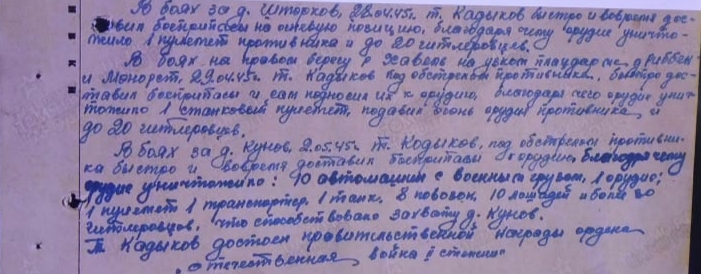 В боях за д. Шторков, 28.04.45г. т. Кадыков быстро и вовремя дос-
тавил боеприпасы на огневую позицию, благодаря чему орудие уничто-
жило 1 пулемет противника и до 20 гитлеровцев.
В боях на правом берегу р Хавель на узком плацдарме д Риббен
и Монорет, 29.04.45г. т. Кадыков под обстрелом противника, быстро дос-
тавил боеприпасы и сам подносил их к орудию, благодаря чего орудие унич-
тожило 1 станковый пулемет, подавил огонь орудия противника и
до 20 гитлеровцев.
В боях за д. Кунов, 2.05.45г. т. Кадыков, под обстрелом противни-
ка быстро и вовремя доставил боеприпасы к орудию, благодаря чему
орудие уничтожило: 10 автомашин с военным грузом, 1 орудие,
1 пулемет 1 транспортер, 1 танк, 8 повозок, 10 лошадей и более 20
гитлеровцев, что способствовало захвату д. Кунов.
Т. Кадыков достоен правительственной награды ордена
"Отечественная война II степени"